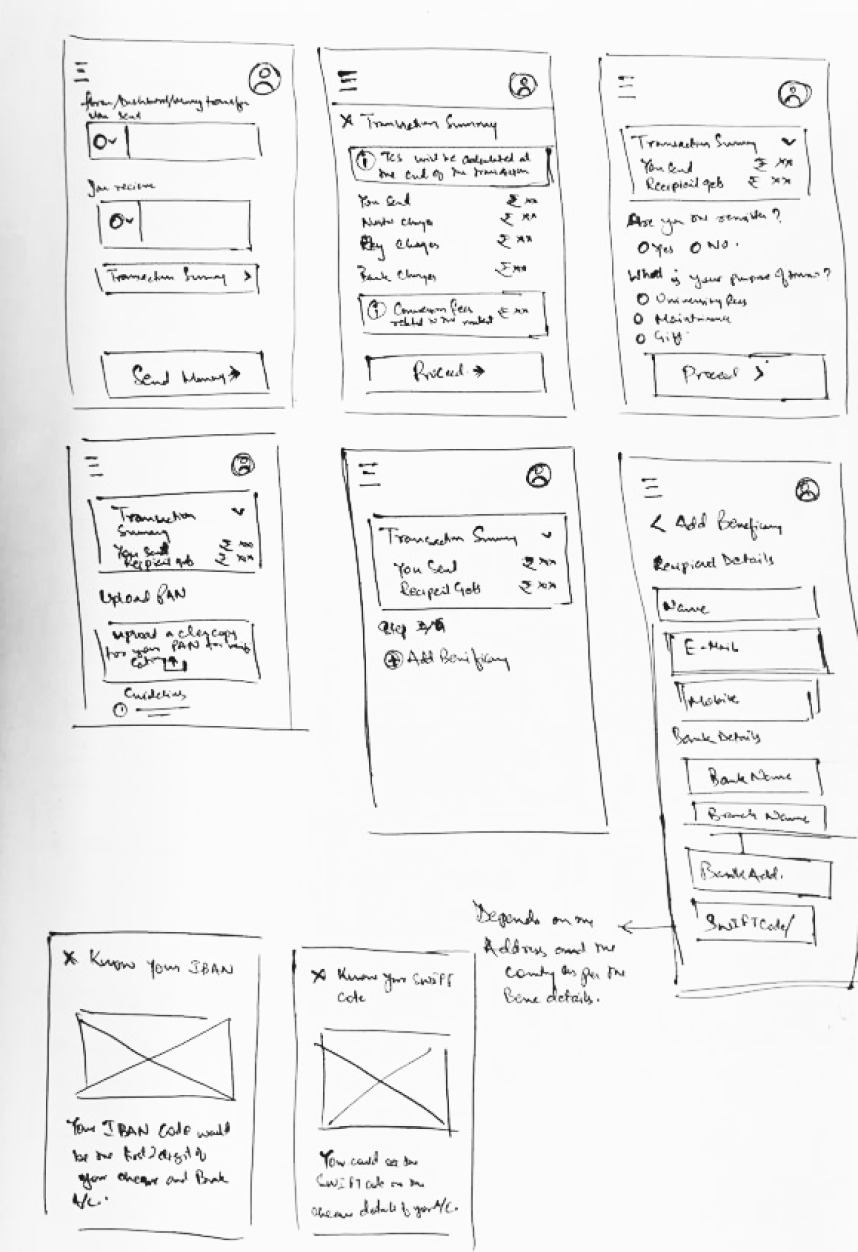 You Send
You recieve
Transaction Summary >
Send Money →
X Transaction Summary
TCS will be calculated at
the end of the transaction
You Send ₹ xx
charges ₹ xx
Charges ₹ xx
Bank Charges ₹ xx
Conversion fees ₹ xx
related to the market
Proceed →
Transaction Summary
You Send ₹ xx
Recepient gets ₹ xx
Are you the remitter?
Yes No.
What is your purpose of ?
University fees
Maintainance
Gift
Proceed >
Transaction
Summary
You Send ₹ xx
Recepient gets ₹ xx
Upload PAN
Upload a clear copy
for your PAN for
Guidelines
Transaction Summary
You Send ₹ xx
Recepient Gets ₹ xx
Step
+ Add Beneficiary
< Add Beneficiary
Recepient Details
Name
E-Mail
Mobile
Bank Details
Bank Name
Branch Name
Bank Add.
SWIFT Code/
Depends on the
Address and the
country as per the
Bene details.
X Know Your IBAN
Your IBAN Code would
be the first 2 digit of
your cheque and Bank
A/c.
X Know your Swift
Code
You could see the
SWIFT code on the
cheque details of your A/c.